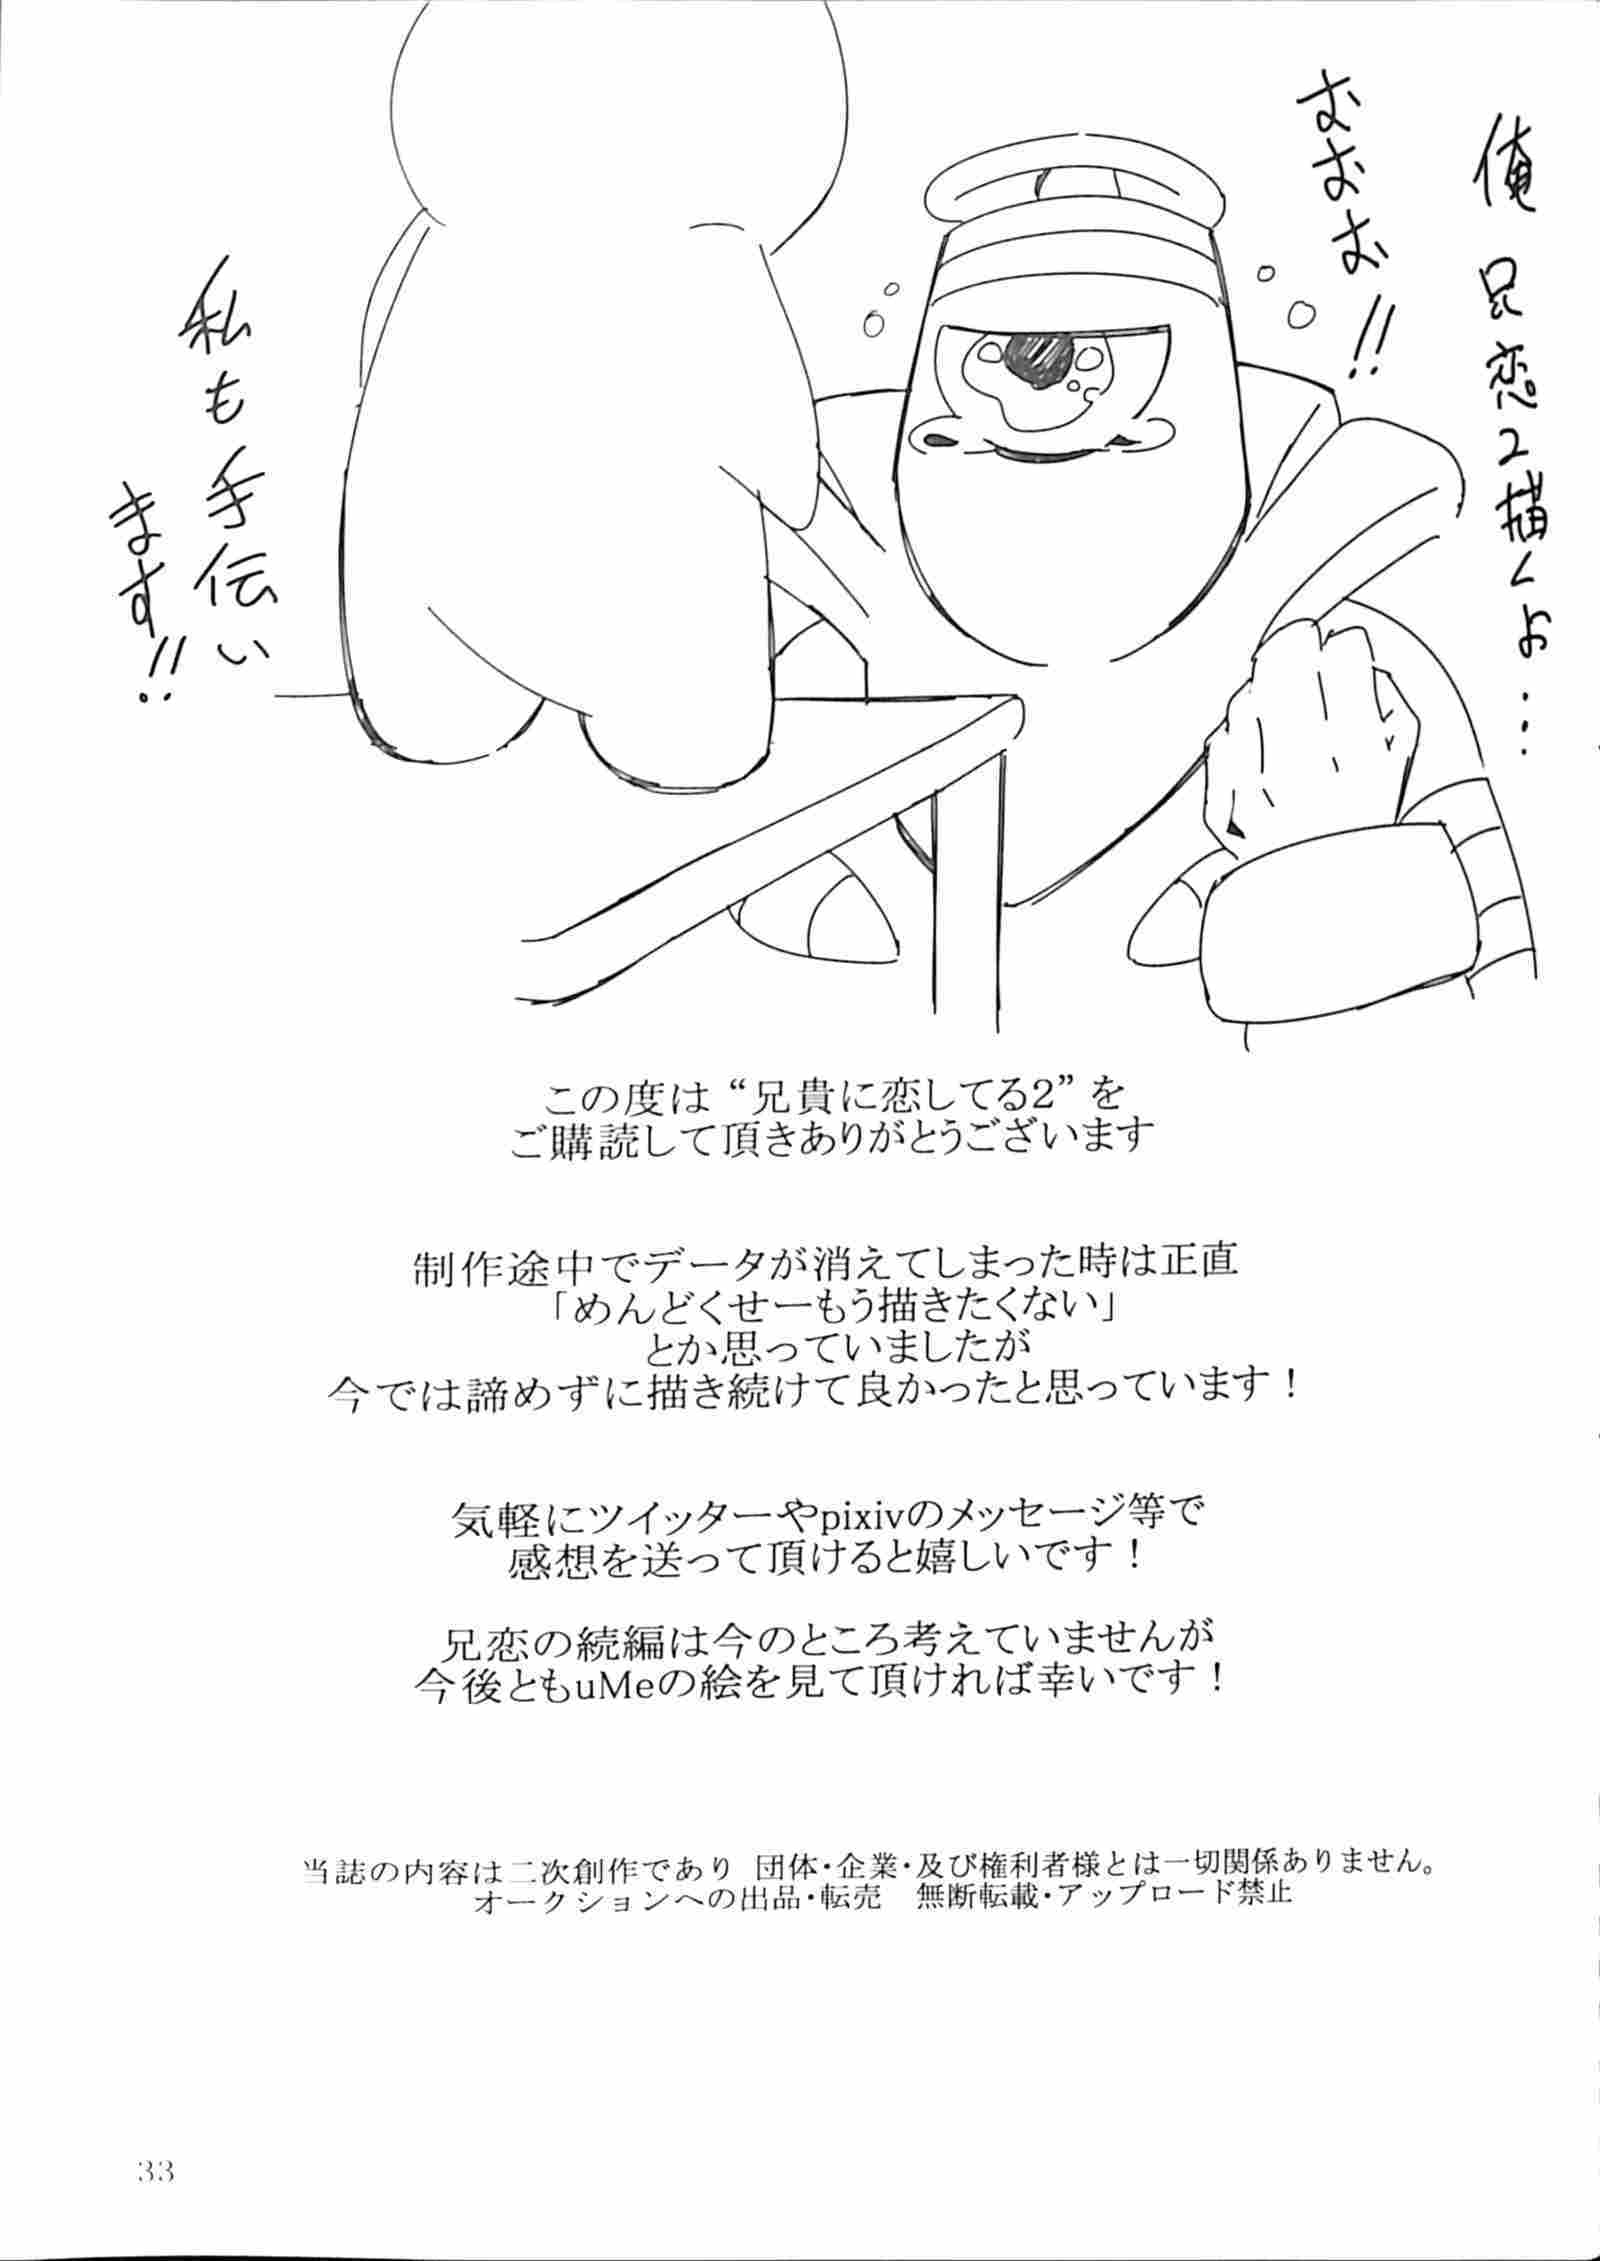 俺兄恋2描くよ…
おおおお!!
私も手伝い
ます!!
この度は“兄貴に恋してる2”を
ご購読して頂きありがとうございます
制作途中でデータが消えてしまった時は正直
「めんどくせーもう描きたくない」
とか思っていましたが
今では諦めずに描き続けて良かったと思っています！
気軽にツイッターやpixivのメッセージ等で
感想を送って頂けると嬉しいです！
兄恋の続編は今のところ考えていませんが
今後ともuMeの絵を見て頂ければ幸いです！
当誌の内容は二次創作であり 団体・企業・及び権利者様とは一切関係ありません。
オークションへの出品・転売　無断転載・アップロード禁止
33